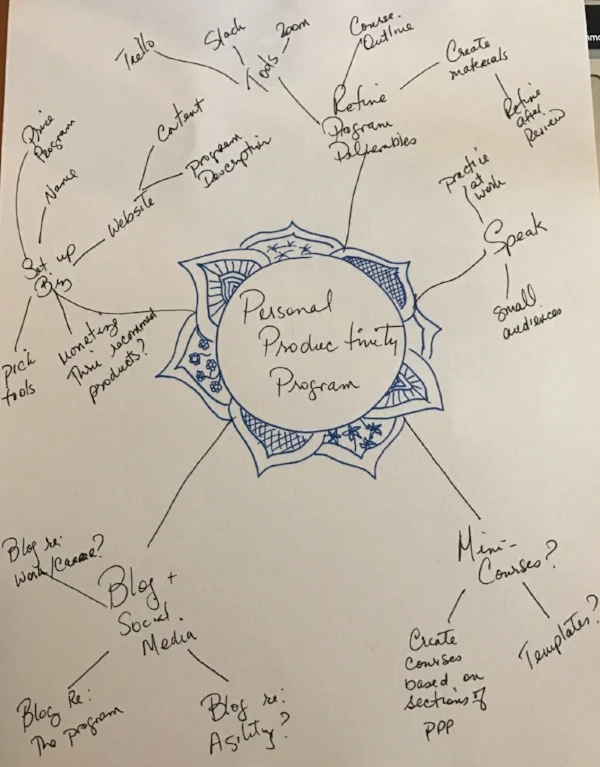 Personal
Productivity
Program
Trello
Slack
Zoom
Tools
Course
Outline
Create
materials
Refine
Program
Deliverables
Refine
after
Review
Price
Program
Name
Content
Program
Description
Website
Set up
Biz
pick
tools
Monetize
Thru recommend
products?
practice
at
work
Speak
small
audiences
Blog re:
Work/Career?
Blog +
Social
Media
Blog Re:
The program
Blog re:
Agility?
Mini-
Courses?
Create
courses
based on
sections of
PPP
Templates?